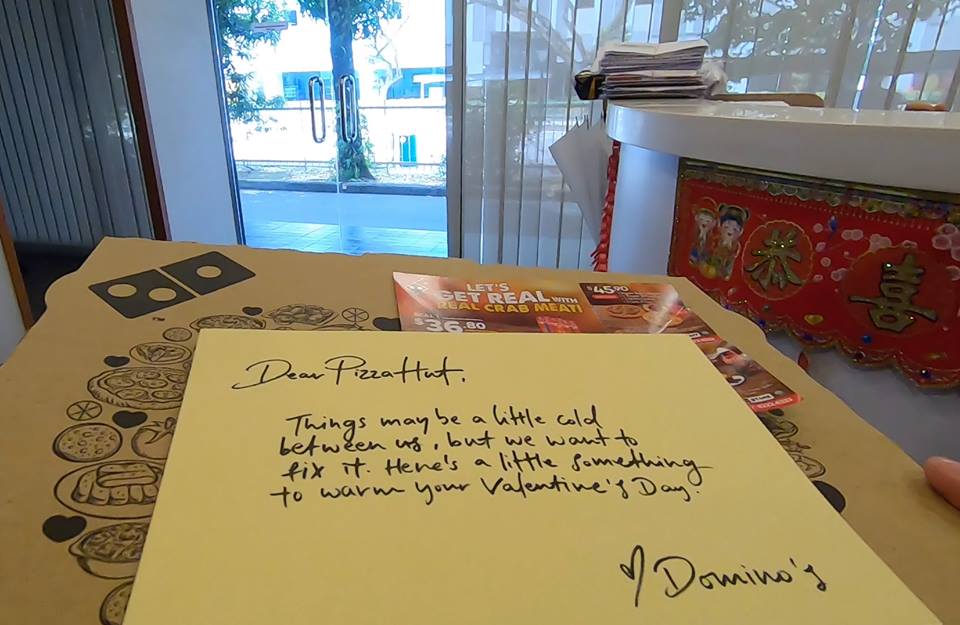 LET'S
GET REAL WITH
REAL CRAB MEAT!
$36.80
$45.90
恭
喜
Dear Pizza Hut,
Things may be a little cold
between us, but we want to
fix it. Here's a little something
to warm your Valentine's Day.
Domino's